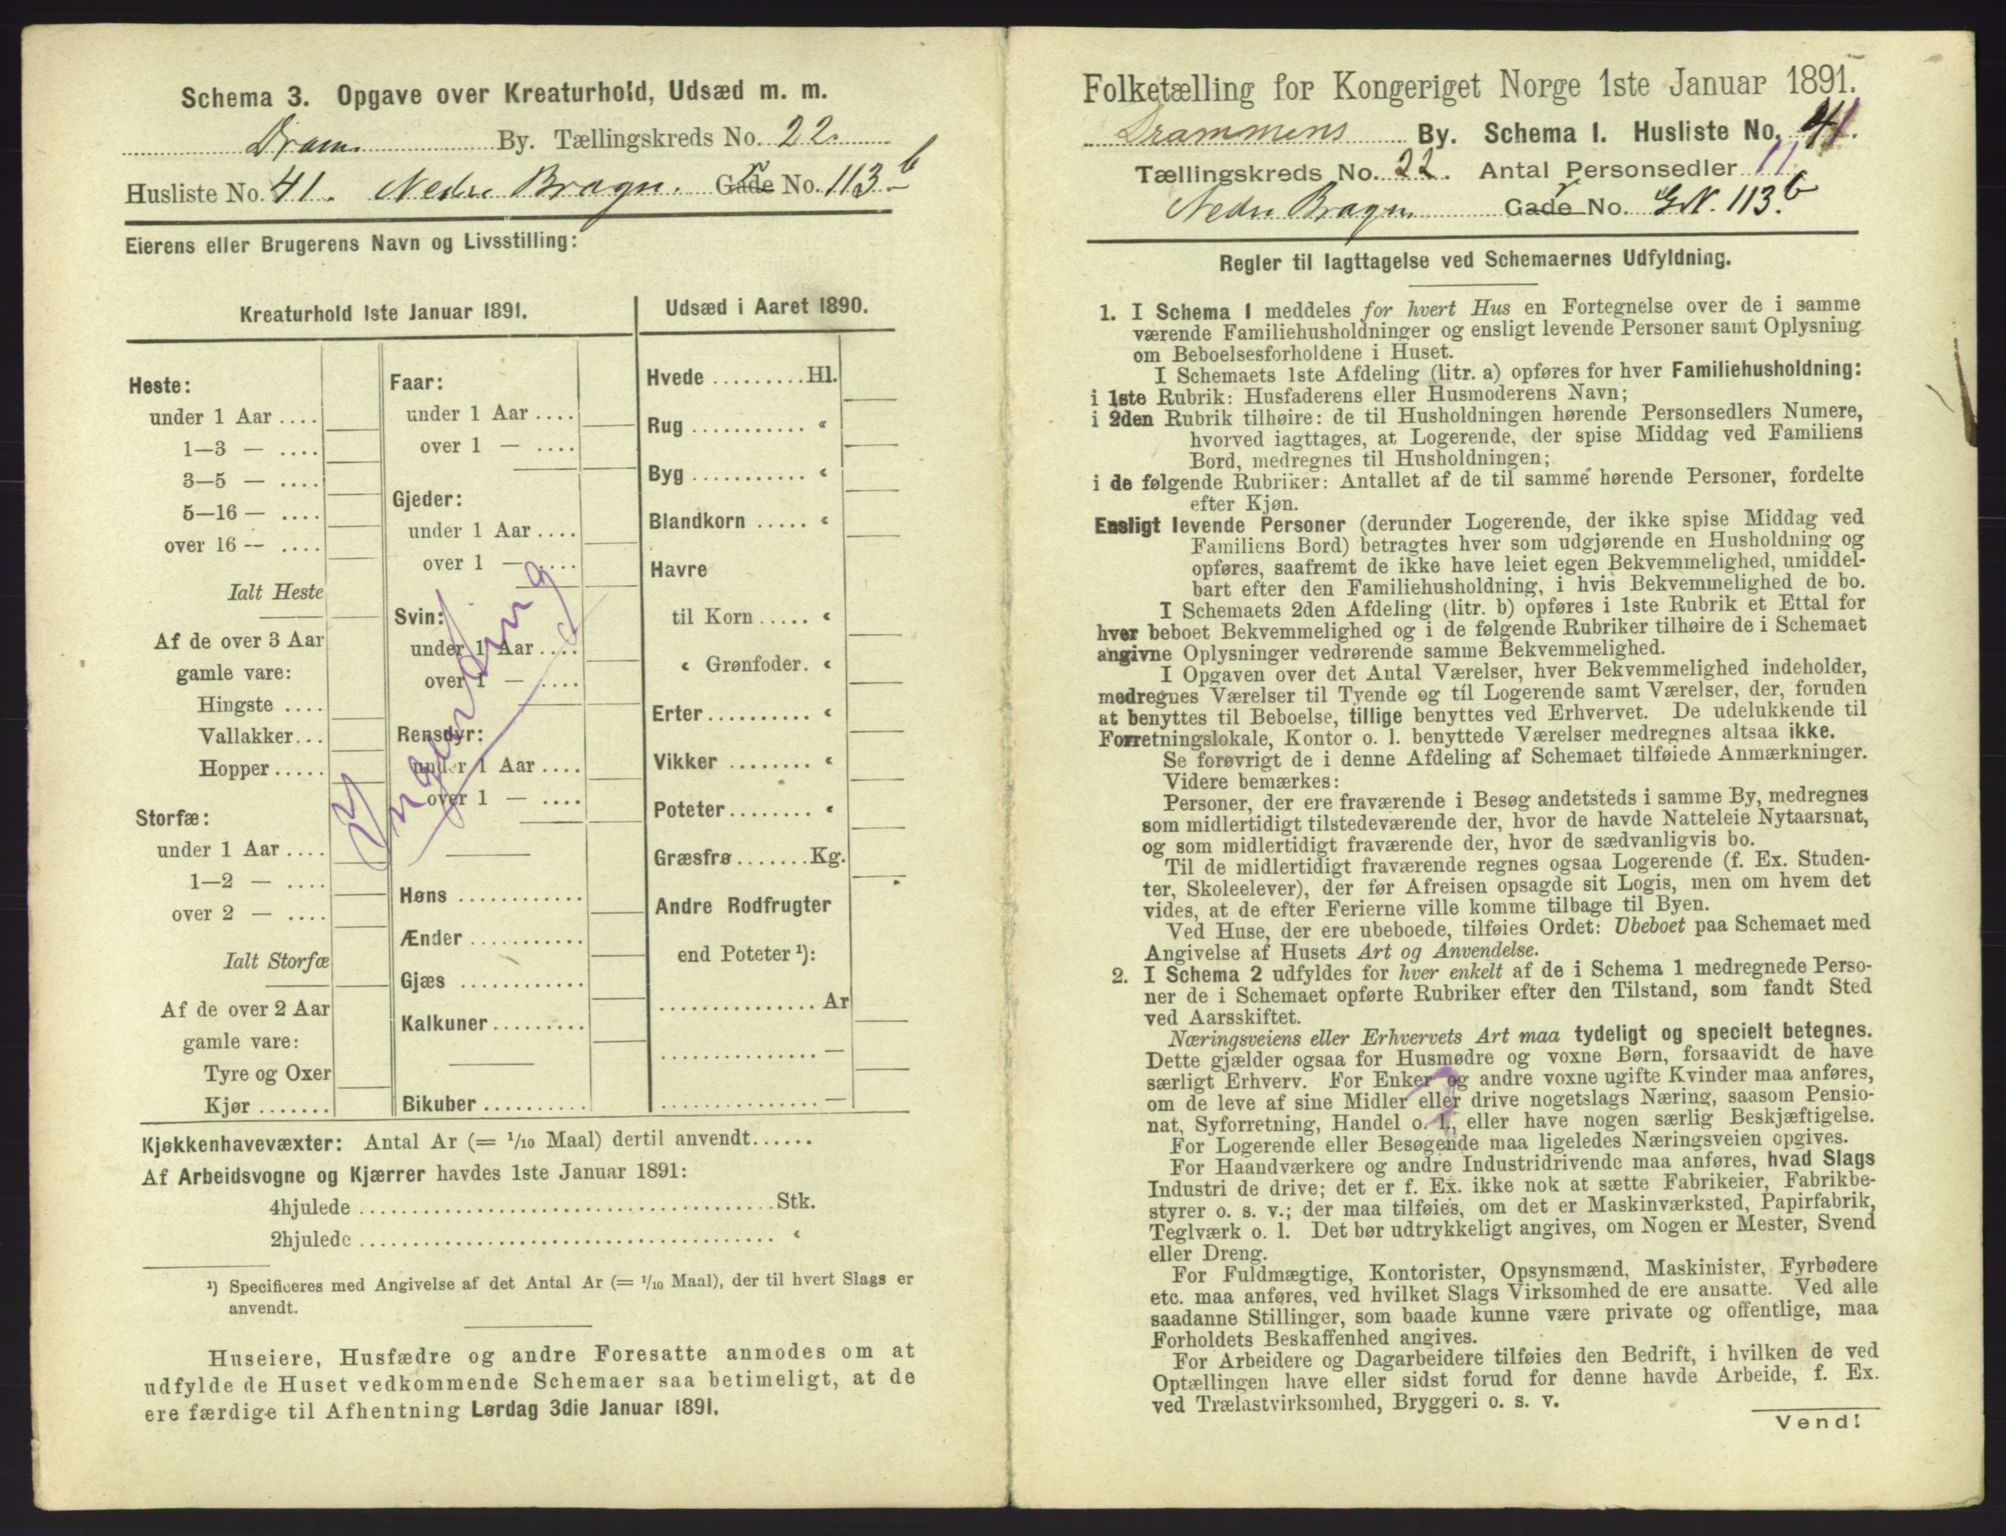 Schema 3. Opgave over Kreaturhold, Udsæd m. m.
Dram. By. Tællingskreds No. 22.
Husliste No. 41. Nedre Bragn. Gade No. 113 b
Eierens eller Brugerens Navn og Livsstilling:
Kreaturhold 1ste Januar 1891.
Heste:
under 1 Aar ....
1—3 — ....
3—5 — ....
5—16 — ....
over 16 — ....
Ialt Heste
Af de over 3 Aar
gamle vare:
Hingste ....
Vallakker...
Hopper .....
Storfæ:
under 1 Aar ....
1—2 — ....
over 2 — ....
Ialt Storfæ
Af de over 2 Aar
gamle vare:
Tyre og Oxer
Kjør .......
Faar:
under 1 Aar ....
over 1 — ....
Gjeder:
under 1 Aar ....
over 1 — ....
Svin:
under 1 Aar ....
over 1 — ....
Rensdyr:
under 1 Aar ....
over 1 — ....
Ingenting
Høns ............
Ænder ...........
Gjæs ............
Kalkuner.........
Bikuber ..........
Udsæd i Aaret 1890.
Hvede .........Hl.
Rug ........... «
Byg ........... «
Blandkorn ..... «
Havre
til Korn ..... «
« Grønfoder. «
Erter.......... «
Vikker ........ «
Poteter........ «
Græsfrø.......Kg.
Andre Rodfrugter
end Poteter ¹):
............... Ar
............... —
............... —
Kjøkkenhavevæxter: Antal Ar (= 1/10 Maal) dertil anvendt......
Af Arbeidsvogne og Kjærrer havdes 1ste Januar 1891:
4hjulede ........................................Stk.
2hjulede ........................................ «
¹) Specificeres med Angivelse af det Antal Ar (= 1/10 Maal), der til hvert Slags er
anvendt.
Huseiere, Husfædre og andre Foresatte anmodes om at
udfylde de Huset vedkommende Schemaer saa betimeligt, at de
ere færdige til Afhentning Lørdag 3die Januar 1891.
Folketælling for Kongeriget Norge 1ste Januar 1891.
Drammens By. Schema I. Husliste No. 41.
Tællingskreds No. 22. Antal Personsedler 11.
Nedre Bragn Gade No. G.N. 113 b
Regler til Iagttagelse ved Schemaernes Udfyldning.
1. I Schema 1 meddeles for hvert Hus en Fortegnelse over de i samme
værende Familiehusholdninger og ensligt levende Personer samt Oplysning
om Beboelsesforholdene i Huset.
I Schemaets 1ste Afdeling (litr. a) opføres for hver Familiehusholdning:
i 1ste Rubrik: Husfaderens eller Husmoderens Navn;
i 2den Rubrik tilhøire: de til Husholdningen hørende Personsedlers Numere,
hvorved iagttages, at Logerende, der spise Middag ved Familiens
Bord, medregnes til Husholdningen;
i de følgende Rubriker: Antallet af de til samme hørende Personer, fordelte
efter Kjøn.
Ensligt levende Personer (derunder Logerende, der ikke spise Middag ved
Familiens Bord) betragtes hver som udgjørende en Husholdning og
opføres, saafremt de ikke have leiet egen Bekvemmelighed, umiddel-
bart efter den Familiehusholdning, i hvis Bekvemmelighed de bo.
I Schemaets 2den Afdeling (litr. b) opføres i 1ste Rubrik et Ettal for
hver beboet Bekvemmelighed og i de følgende Rubriker tilhøire de i Schemaet
angivne Oplysninger vedrørende samme Bekvemmelighed.
I Opgaven over det Antal Værelser, hver Bekvemmelighed indeholder,
medregnes Værelser til Tyende og til Logerende samt Værelser, der, foruden
at benyttes til Beboelse, tillige benyttes ved Erhvervet. De udelukkende til
Forretningslokale, Kontor o. l. benyttede Værelser medregnes altsaa ikke.
Se forøvrigt de i denne Afdeling af Schemaet tilføiede Anmærkninger.
Videre bemærkes:
Personer, der ere fraværende i Besøg andetsteds i samme By, medregnes
som midlertidigt tilstedeværende der, hvor de havde Natteleie Nytaarsnat,
og som midlertidigt fraværende der, hvor de sædvanligvis bo.
Til de midlertidigt fraværende regnes ogsaa Logerende (f. Ex. Studen-
ter, Skoleelever), der før Afreisen opsagde sit Logis, men om hvem det
vides, at de efter Ferierne ville komme tilbage til Byen.
Ved Huse, der ere ubeboede, tilføies Ordet: Ubeboet paa Schemaet med
Angivelse af Husets Art og Anvendelse.
2. I Schema 2 udfyldes for hver enkelt af de i Schema 1 medregnede Perso-
ner de i Schemaet opførte Rubriker efter den Tilstand, som fandt Sted
ved Aarsskiftet.
Næringsveiens eller Erhvervets Art maa tydeligt og specielt betegnes.
Dette gjælder ogsaa for Husmødre og voxne Børn, forsaavidt de have
særligt Erhverv. For Enker og andre voxne ugifte Kvinder maa anføres,
om de leve af sine Midler eller drive nogetslags Næring, saasom Pensio-
nat, Syforretning, Handel o. l., eller have nogen særlig Beskjæftigelse.
For Logerende eller Besøgende maa ligeledes Næringsveien opgives.
For Haandværkere og andre Industridrivende maa anføres, hvad Slags
Industri de drive; det er f. Ex. ikke nok at sætte Fabrikeier, Fabrikbe-
styrer o. s. v.; der maa tilføies, om det er Maskinværksted, Papirfabrik,
Teglværk o. l. Det bør udtrykkeligt angives, om Nogen er Mester, Svend
eller Dreng.
For Fuldmægtige, Kontorister, Opsynsmænd, Maskinister, Fyrbødere
etc. maa anføres, ved hvilket Slags Virksomhed de ere ansatte. Ved alle
saadanne Stillinger, som baade kunne være private og offentlige, maa
Forholdets Beskaffenhed angives.
For Arbeidere og Dagarbeidere tilføies den Bedrift, i hvilken de ved
Optællingen have eller sidst forud for denne havde Arbeide, f. Ex.
ved Trælastvirksomhed, Bryggeri o. s. v.
Vend!